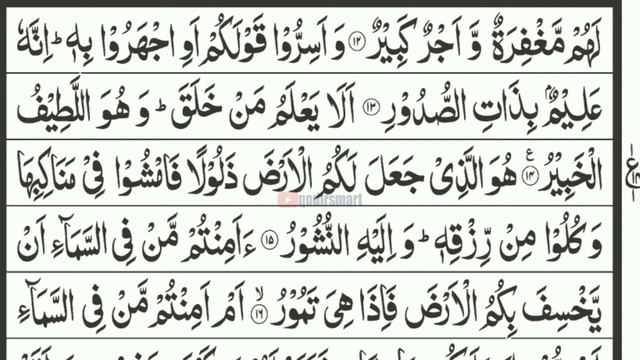 لَهُمْ مَّغْفِرَةٌ وَّ اَجْرٌ كَبِيْرٌ ۝۱۲ وَ اَسِرُّوْا قَوْلَكُمْ اَوِ اجْهَرُوْا بِهٖ ؕ اِنَّهٗ
عَلِيْمٌۢ بِذَاتِ الصُّدُوْرِ ۝۱۳ اَلَا يَعْلَمُ مَنْ خَلَقَ ؕ وَ هُوَ اللَّطِيْفُ
الْخَبِيْرُ ۝۱۴ هُوَ الَّذِيْ جَعَلَ لَكُمُ الْاَرْضَ ذَلُوْلًا فَامْشُوْا فِيْ مَنَاكِبِهَا
qoairsmart
وَ كُلُوْا مِنْ رِّزْقِهٖ ؕ وَ اِلَيْهِ النُّشُوْرُ ۝۱۵ ءَاَمِنْتُمْ مَّنْ فِي السَّمَآءِ اَنْ
يَّخْسِفَ بِكُمُ الْاَرْضَ فَاِذَا هِيَ تَمُوْرُ ۝۱۶ۙ اَمْ اَمِنْتُمْ مَّنْ فِي السَّمَآءِ